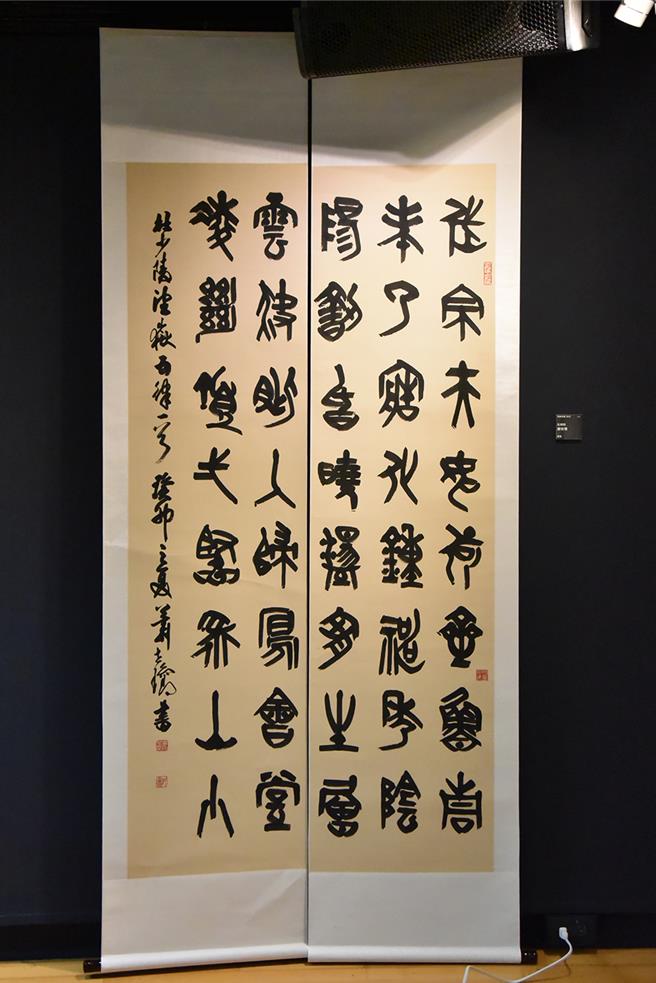 岱宗夫如何齊魯青
未了造化鍾神秀陰
陽割昏曉盪胸生層
雲決眥入歸鳥會當
凌絕頂一覽眾山小
杜少陵望嶽五律一首 癸卯之夏 書